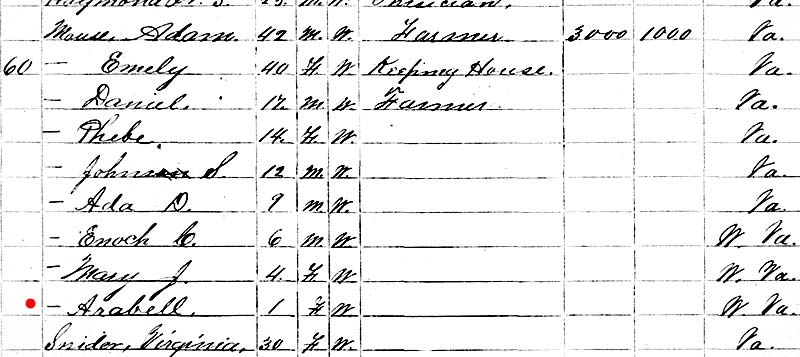 Physician. Va.
Mouse, Adam. 42 M. W. Farmer 3000 1000 Va.
60 — Emely 40 F. W Keeping House. Va.
— Daniel. 17. M. W Farmer Va.
— Phebe 14. F. W. Va.
— S. 12 M. W. Va.
— Ada D. 9 M. W. Va.
— Enoch C. 6 M. W W. Va.
— Mary J. 4. F. W W. Va.
— Arabell. 1 F W W. Va.
Snider, Virginia, 30 F. W. Va.